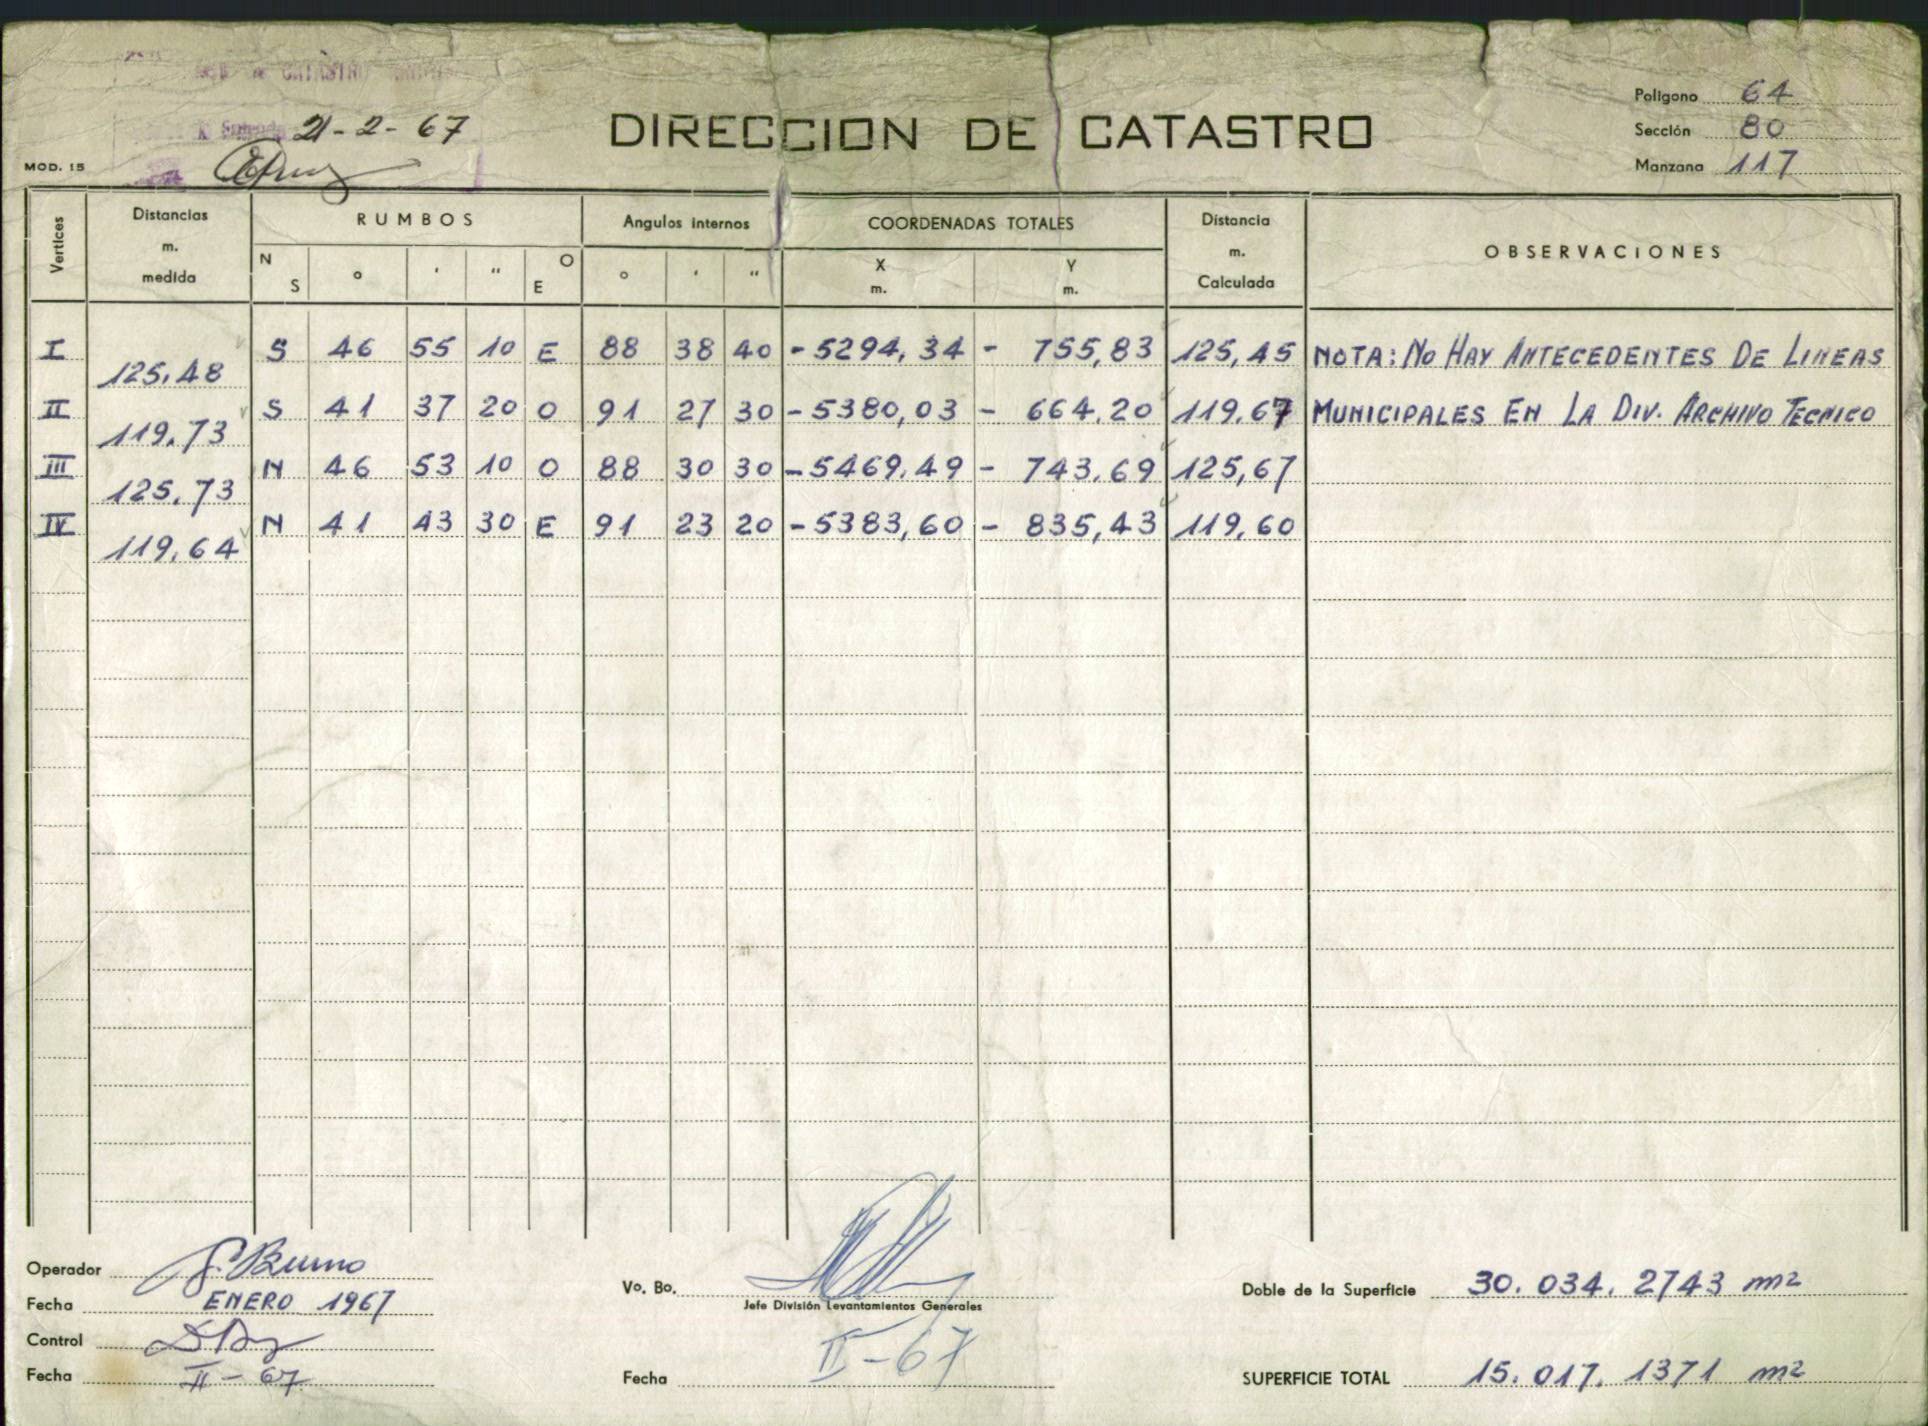 CATASTRO
21-2-67
MOD. 15
DIRECCION DE CATASTRO
Poligono 64
Sección 80
Manzana 117
Vertices
Distancias m. medida
RUMBOS
N S ° ' " O E
Angulos internos
° ' "
COORDENADAS TOTALES
X m. Y m.
Distancia m. Calculada
OBSERVACIONES
I S 46 55 10 E 88 38 40 -5294,34 - 755,83 125,45 NOTA: NO HAY ANTECEDENTES DE LINEAS
125,48
II S 41 37 20 O 91 27 30 -5380,03 - 664.20 119.67 MUNICIPALES EN LA DIV. ARCHIVO TECNICO
119.73
III N 46 53 10 O 88 30 30 -5469.49 - 743.69 125,67
125.73
IV N 41 43 30 E 91 23 20 -5383,60 - 835,43 119,60
119,64
Operador G. Bruno
Fecha ENERO 1967
Control
Fecha II-67
Vo. Bo.
Jefe División Levantamientos Generales
Fecha II-67
Doble de la Superficie 30.034.2743 m2
SUPERFICIE TOTAL 15.017.1371 m2